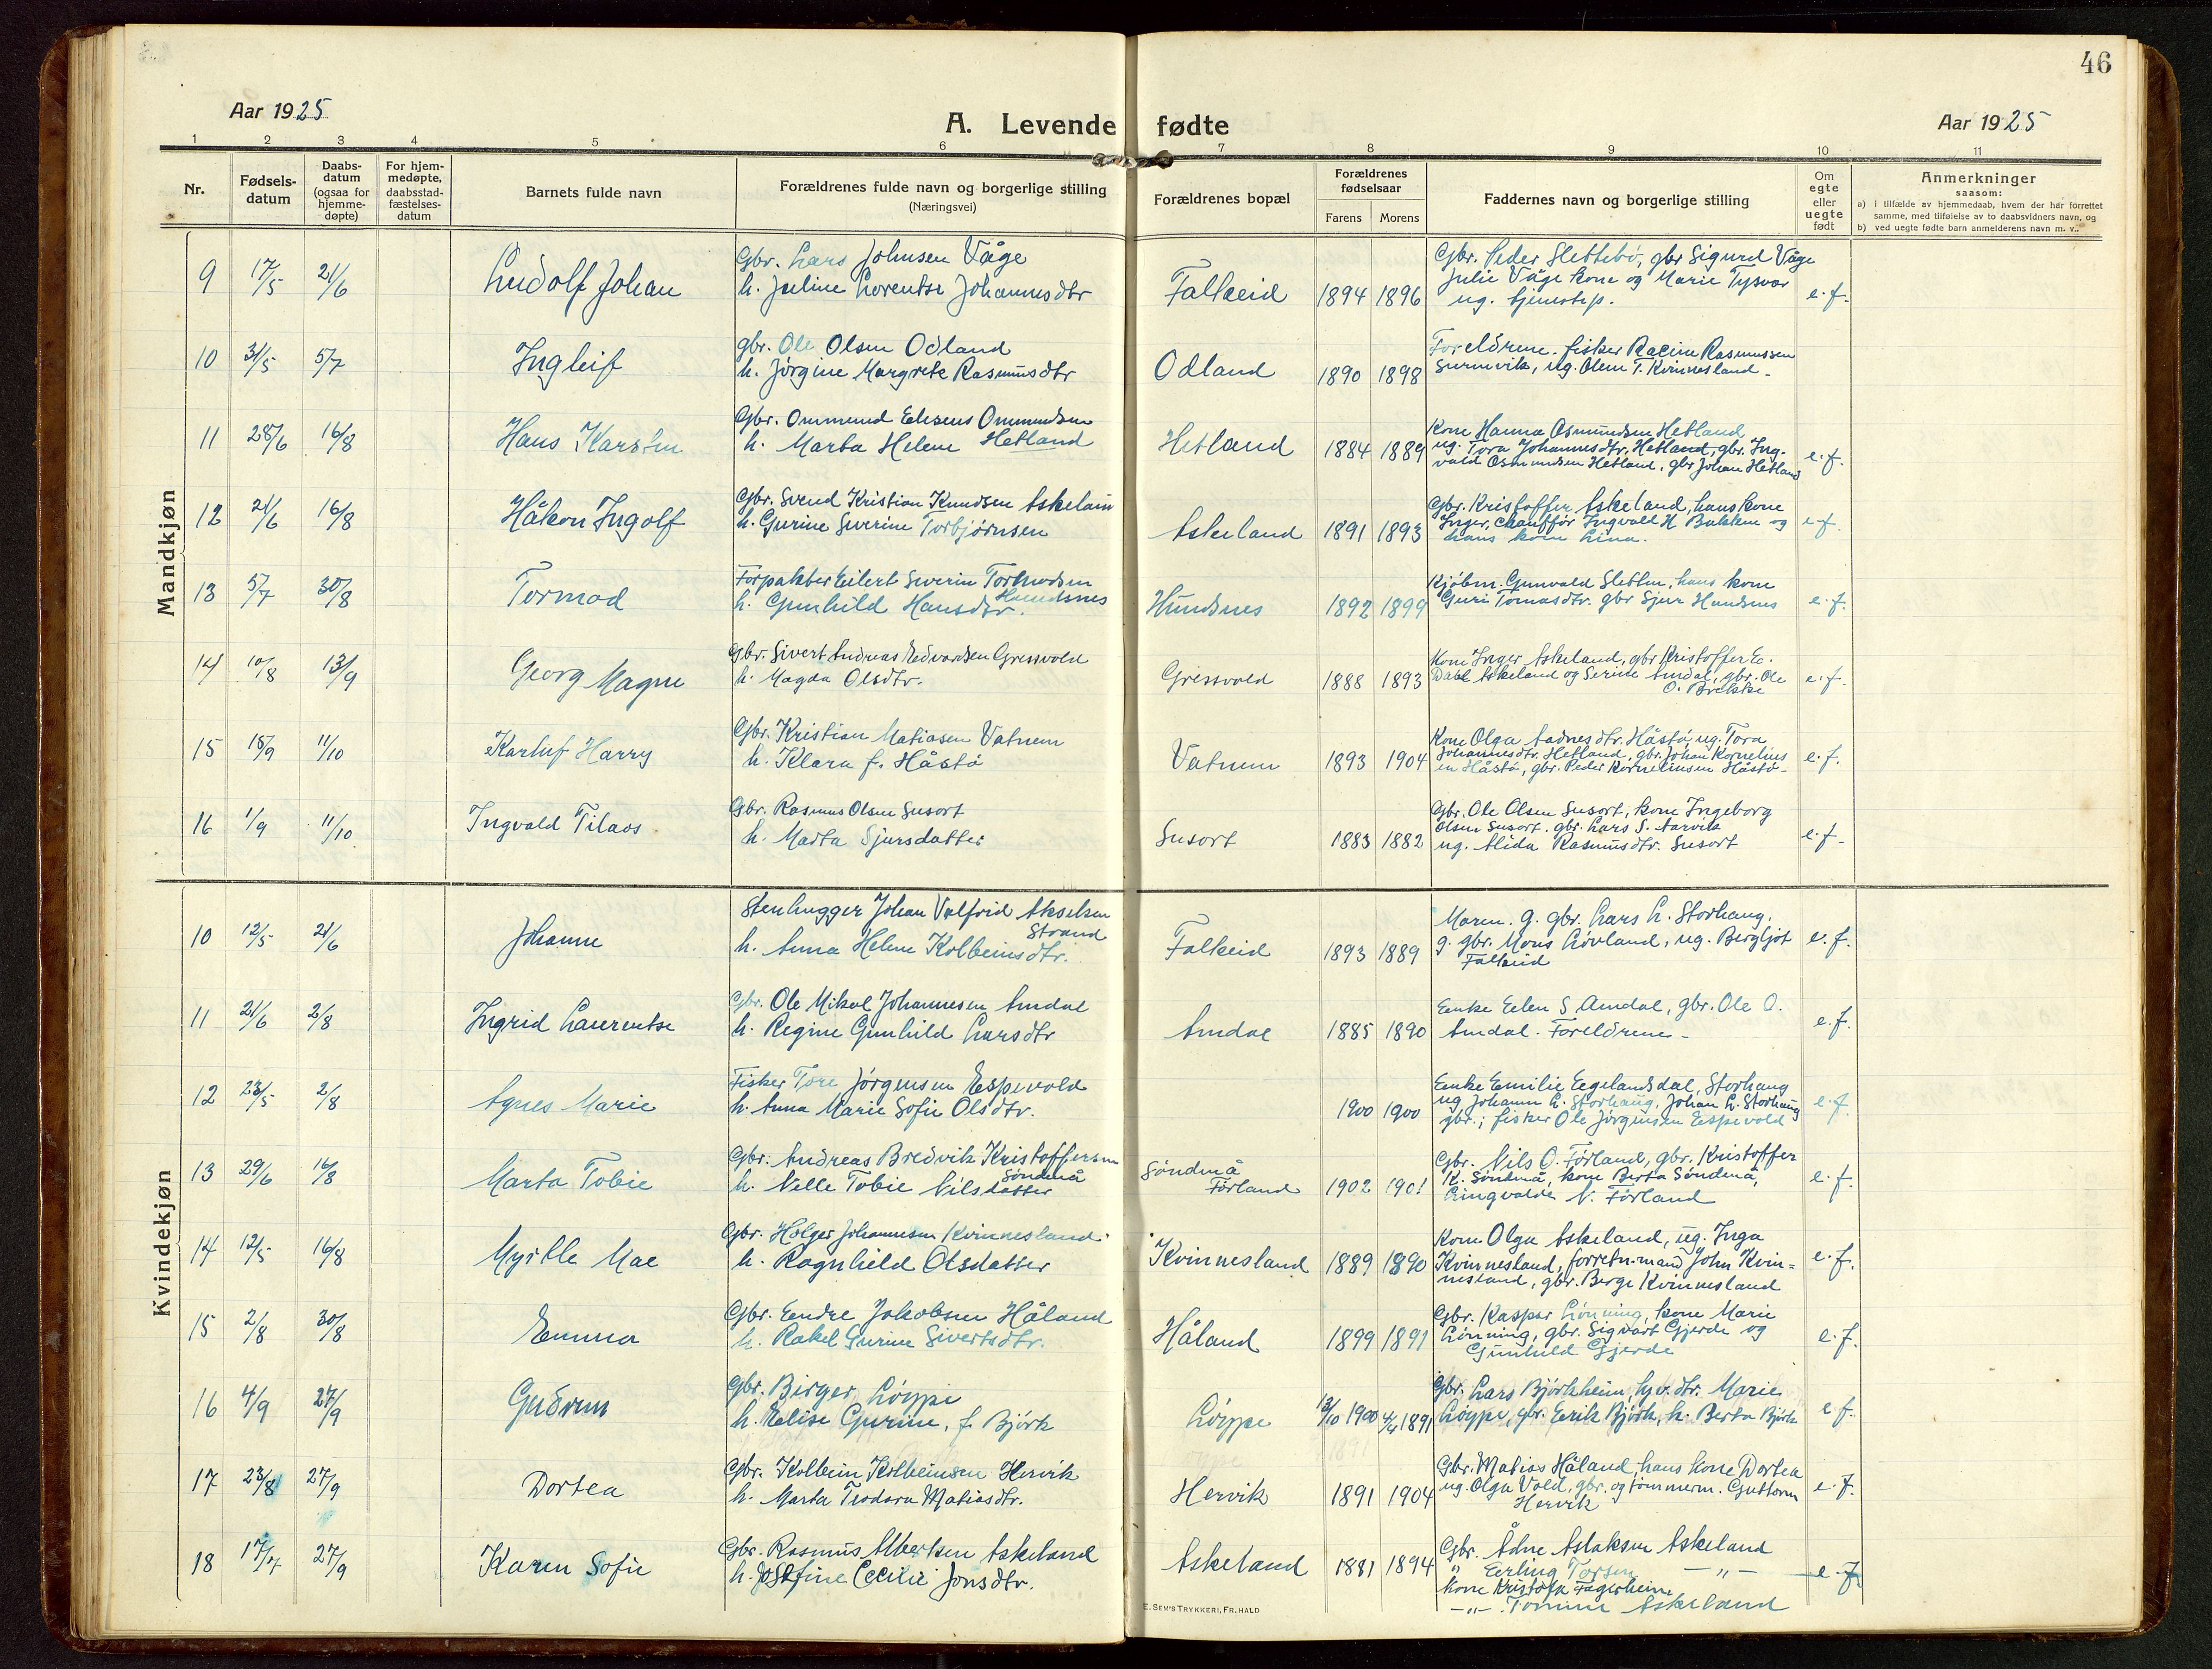 46
Aar 1925
A. Levende fødte
Aar 1925
1 2 3 4 5 6 7 8 9 10 11
Nr.
Fødsels-
datum
Daabs-
datum
(ogsaa for
hjemme-
døpte)
For hjem-
medøpte,
daabsstad-
fæstelses-
datum
Barnets fulde navn
Forældrenes fulde navn og borgerlige stilling
(Næringsvei)
Forældrenes bopæl
Forældrenes
fødselsaar
Farens Morens
Faddernes navn og borgerlige stilling
Om
egte
eller
uegte
født
Anmerkninger
saasom:
a) i tilfælde av hjemmedaab, hvem der har forrettet
samme, med tilføielse av to daabsvidners navn, og
b) ved uegte fødte barn anmelderens navn m. v.
Mandkjøn
9 17/5 21/6 Ludolf Johan
Gbr. Lars Johnsen Våge
h. Juline Lorentse Johannesdtr
Falkeid 1894 1896
Gbr. Peder Slettebö, gbr Sigurd Våge
Julie Våge kone og Marie Tysvær
ug. tjenestep.
e.f.
10 31/5 5/7 Ingleif
gbr. Ole Olsen Odland
h. Jörgine Margrete Rasmusdtr
Odland 1890 1898
Foreldrene. fisker Rasmussen
ug. T. Kvinnesland -
11 28/6 16/8 Hans Karsten
Gbr. Ommund Ommundsen
h. Marta Helene Hetland
Hetland 1884 1889
Kone Hanna Osmundsen Hetland
ug. Tora Johannesdtr. Hetland, gbr. Ing-
vald Osmundsen Hetland, gbr Johan Hetland
e.f.
12 21/6 16/8 Håkon Ingolf
Gbr. Svend Kristian Knudsen Askeland
h. Gurine Severine Torbjørnsen
Askeland 1891 1893
Gbr. Kristoffer Askeland, hans kone
Inger, chauffør Ingvald H Bakken og
hans kone Lina.
e.f.
13 5/7 30/8 Tormod
Forpakter Eilert Severin Tormodsen
Hundsnes
h. Gunhild Hansdtr.
Hundsnes 1892 1899
Kjöbm. Gunvald Sletten, hans kone
Guri Tomasdtr. gbr Sjur Hundsnes
e.f.
14 10/8 13/9 Georg Magne
Gbr. Sivert Andreas Edvardsen Gressvold
h. Magda Olsdtr.
Gressvold 1888 1893
Kone Inger Askeland, gbr Kristoffer E.
Dahl Askeland og Serine Amdal, gbr. Ole
O.
e.f.
15 15/9 11/10 Karluf Harry
Gbr. Kristian Matiasen Vatnem
h. Klara f. Håstö
Vatnem 1893 1904
Kone Olga Aadnesdtr. Håstö, ug. Tora
Johannesdtr. Hetland, gbr. Johan Kornelius
en Håstö, gbr. Peder Korneliusen Håstö-
e.f.
16 1/9 11/10 Ingvald Tilaos
Gbr. Rasmus Olsen Susort
h. Marta Sjursdatter
Susort 1883 1882
Gbr. Ole Olsen Susort, kone Ingeborg
Olsen Susort. gbr. Lars S. Aarvik
ug. Alida Rasmusdtr. Susort
e.f.
Kvindekjøn
10 12/5 21/6 Johanne
Stenhugger Johan Valfrid Akselsen
Strand
h. Anna Helene Kolbeinsdtr.
Falkeid 1893 1889
Maren. g. gbr. Lars L. Storhaug.
g. gbr. Mons Lövland, ug. Bergljot
Falkeid
e.f.
11 21/6 2/8 Ingrid Laurentse
Gbr. Ole Mikal Johannesen Amdal
h. Regine Gunhild Larsdtr
Amdal 1885 1890
Enke Elen S Amdal, gbr. Ole O.
Amdal. Foreldrene -
e.f.
12 23/5 2/8 Agnes Marie
Fisker Tore Jörgensen Espevold
h. Anna Marie Sofie Olsdtr.
1900 1900
Enke Emilie Egelandsdal, Storhaug
ug Johanne L. Storhaug, Johan L. Storhaug
gbr.; fisker Ole Jörgensen Espevold
e.f.
13 29/6 16/8 Marta Tobie
Gbr. Andreas Bredvik Kristoffersen
Söndenå
h. Nelle Tobie Nilsdatter
Söndenå
Förland 1902 1901
Gbr. Nils O. Förland, gbr. Kristoffer
K. Söndenå, kone Berta Söndenå,
N. Förland
e.f.
14 12/5 16/8 Myrtle Mae
Gbr. Holger Johannesen Kvinnesland
h. Ragnhild Olsdatter
Kvinnesland 1889 1890
Kone Olga Askeland, ug. Inga
Kvinnesland, forretn.mand John Kvin=
nesland, gbr. Berge Kvinnesland
e.f.
15 2/8 30/8 Emma
Gbr. Endre Jakobsen Håland
h. Rakel Gurine Sivertsdtr.
Håland 1899 1891
Gbr. Kaspar Lönning, kone Marie
Lönning, gbr. Sigvart Gjerde og
Gunhild Gjerde
e.f.
16 4/9 27/9 Gudrun
Gbr. Birger Löyppe
h. Elise Gurine, f. Björk
Löyppe 13/10 1900 4/4 1891
Gbr. Lars Björkheim, Marie
Löype, gbr. Erik Björk, h. Berta Björk
e.f.
17 23/8 27/9 Dortea
Gbr. Kolbein Kolbeinsen Hervik
h. Marta Teodora Matiasdtr.
Hervik 1891 1904
Gbr. Matias Håland, hans kone Dortea
ug. Olga Vold, gbr. og tømmerm. Guttorm
Hervik
e.f.
18 17/7 27/9 Karen Sofie
Gbr. Rasmus Albertsen Askeland
h. Josefine Cecilie Jonsdtr.
Askeland 1881 1894
Gbr. Ådne Aslaksen Askeland
" Erling Torsen -"-
kone Kristofa Fagerheim
-"- Tomine Askeland
e.f.
E. SEM'S TRYKKERI, FR. HALD